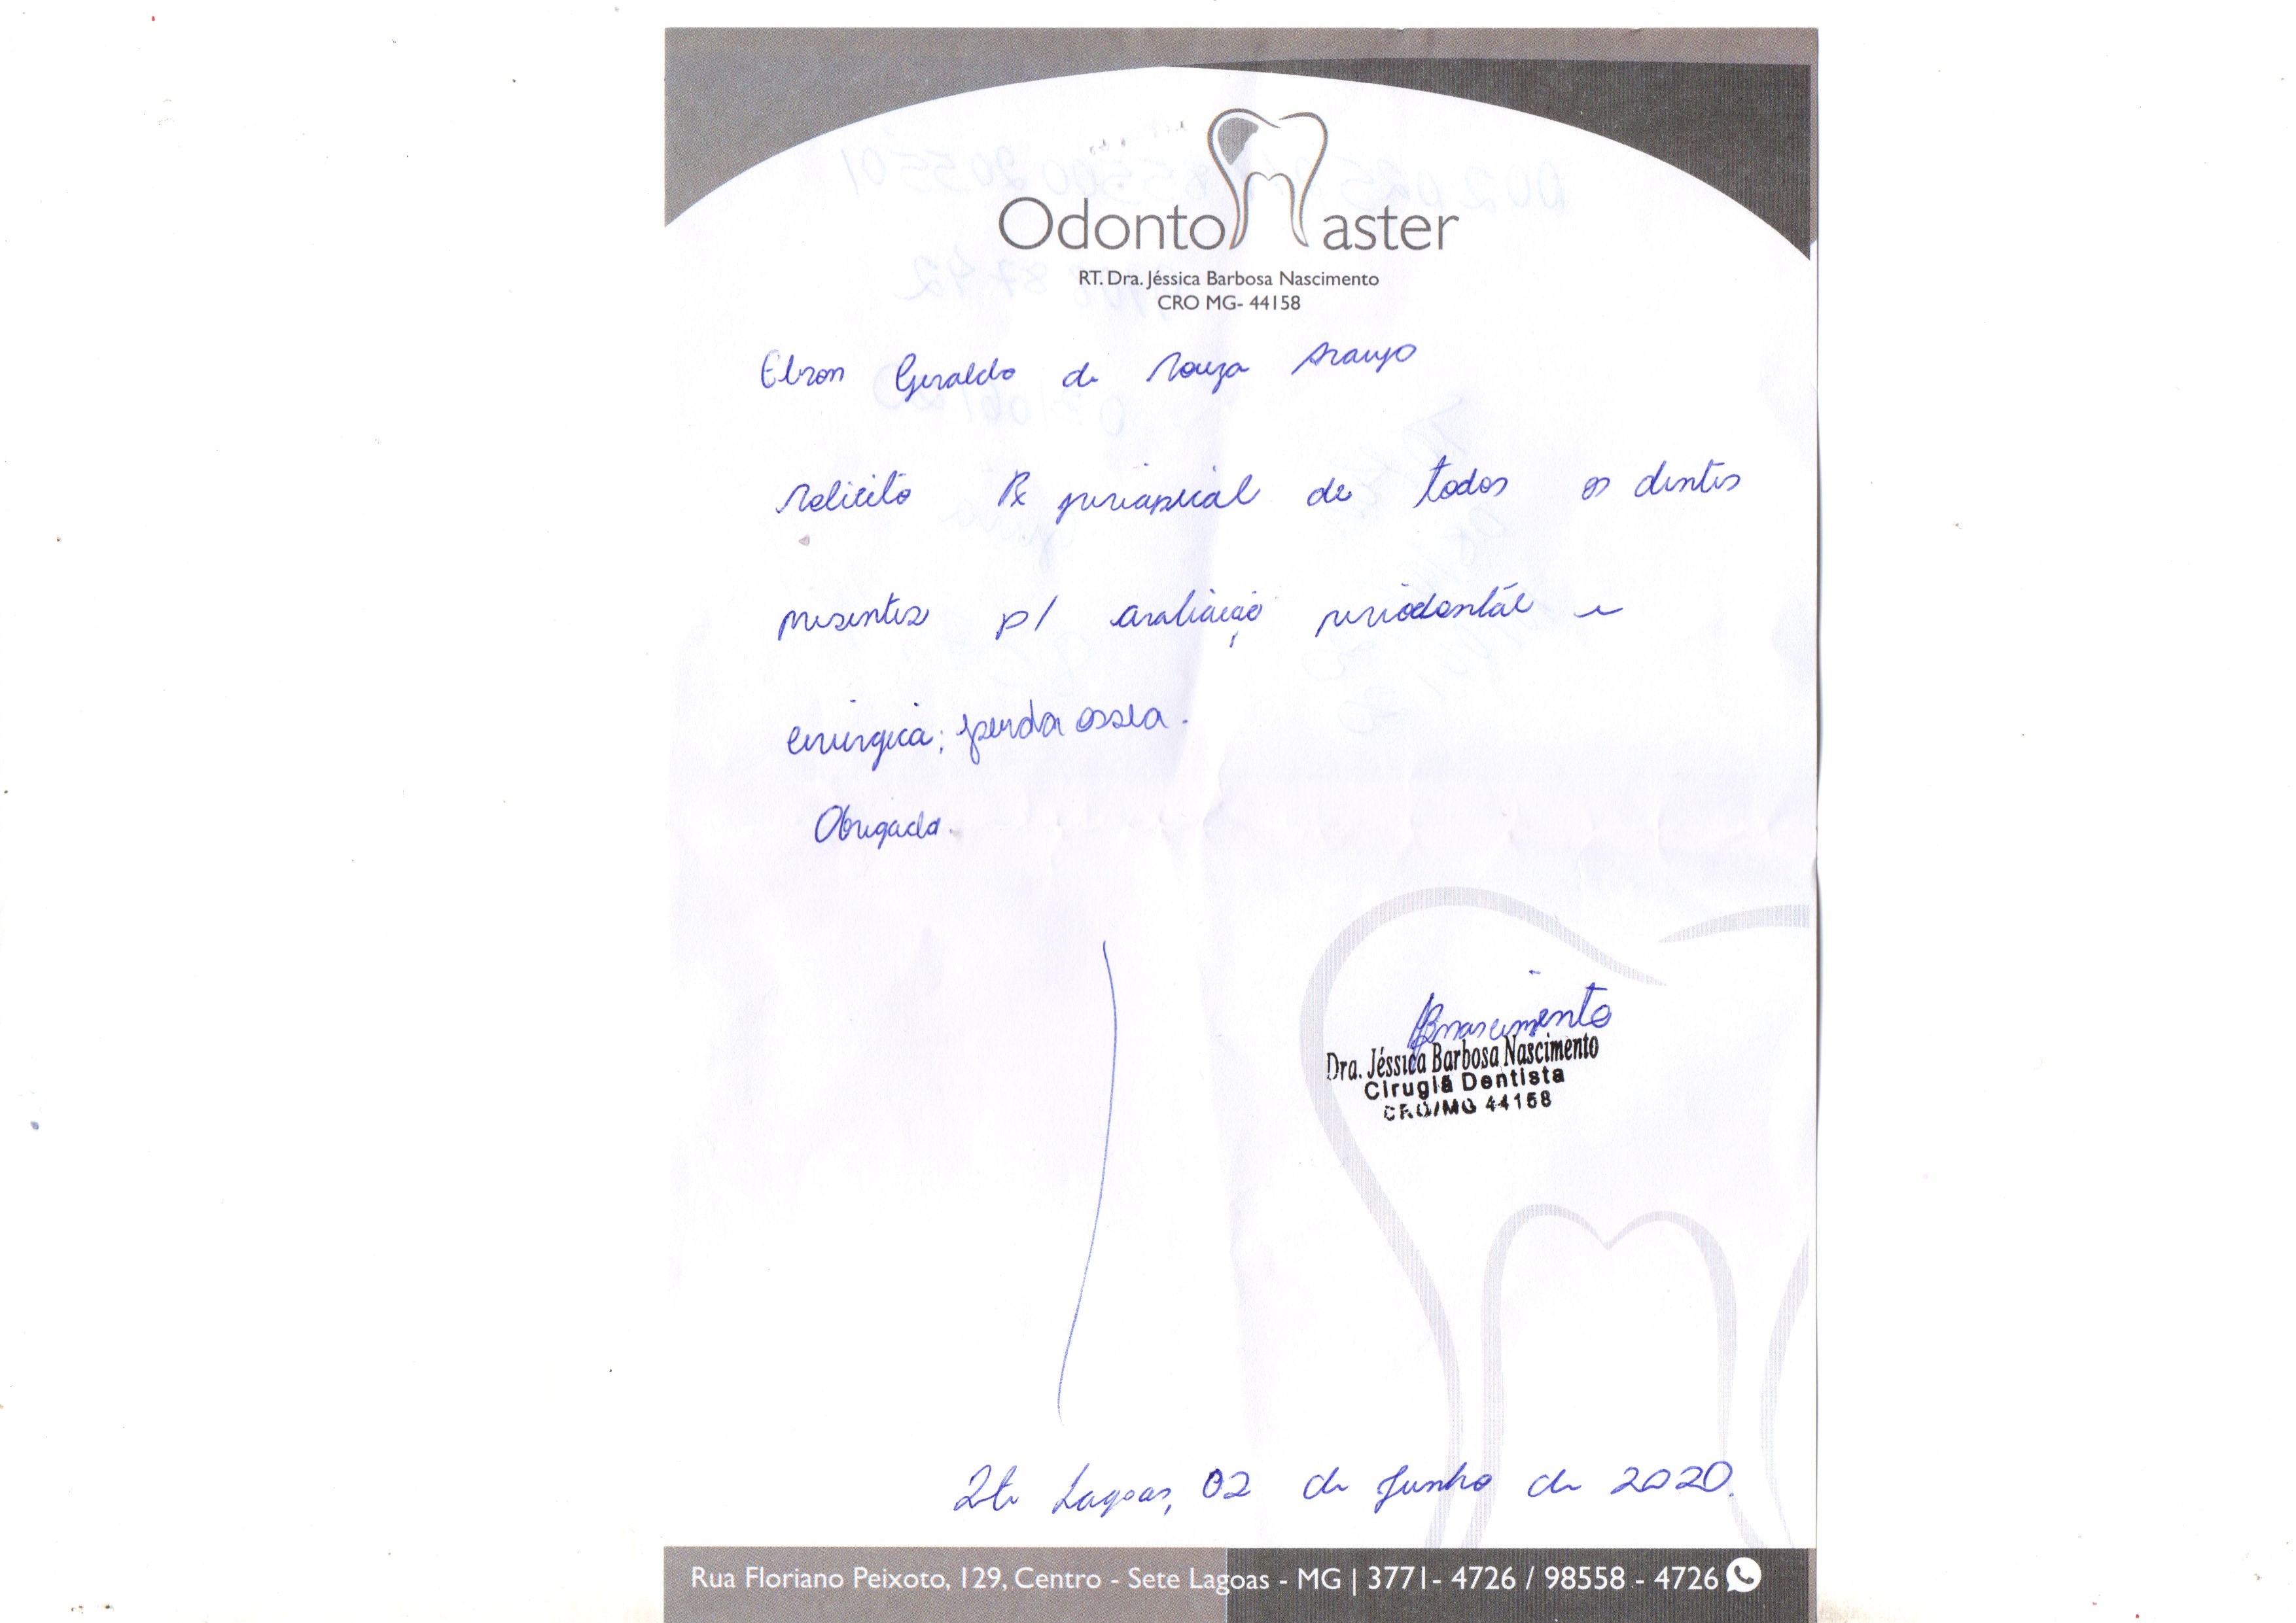 OdontoMaster
RT. Dra. Jéssica Barbosa Nascimento
CRO MG- 44158
Geraldo de Souza Araujo
Solicito Rx periapical de todos os dentes
presentes p/ avaliação periodontal e
cirúrgica; perda óssea.
Obrigada.
Dra. Jéssica Barbosa Nascimento
Cirugiã Dentista
CRO/MG 44158
Lagoas, 02 de Junho de 2020.
Rua Floriano Peixoto, 129, Centro - Sete Lagoas - MG | 3771- 4726 / 98558 - 4726